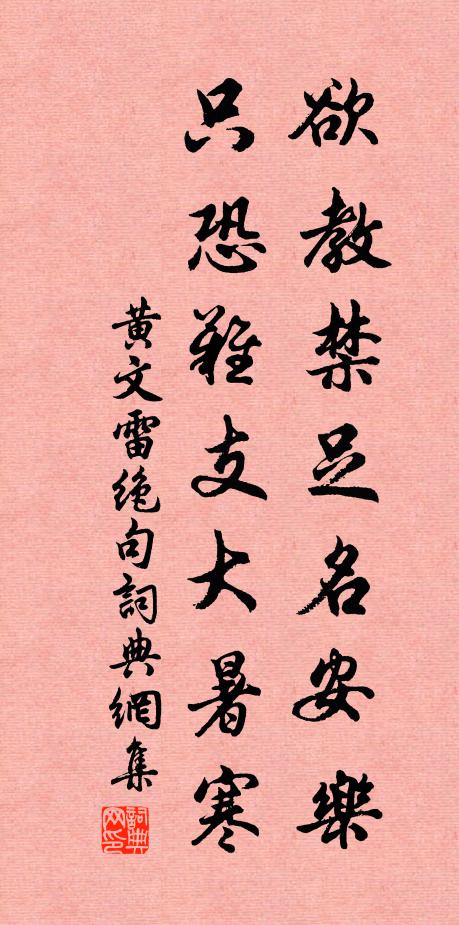 欲教禁足名安樂
只恐難支大暑寒
黃文雷絶句詞典網集
詞典網印